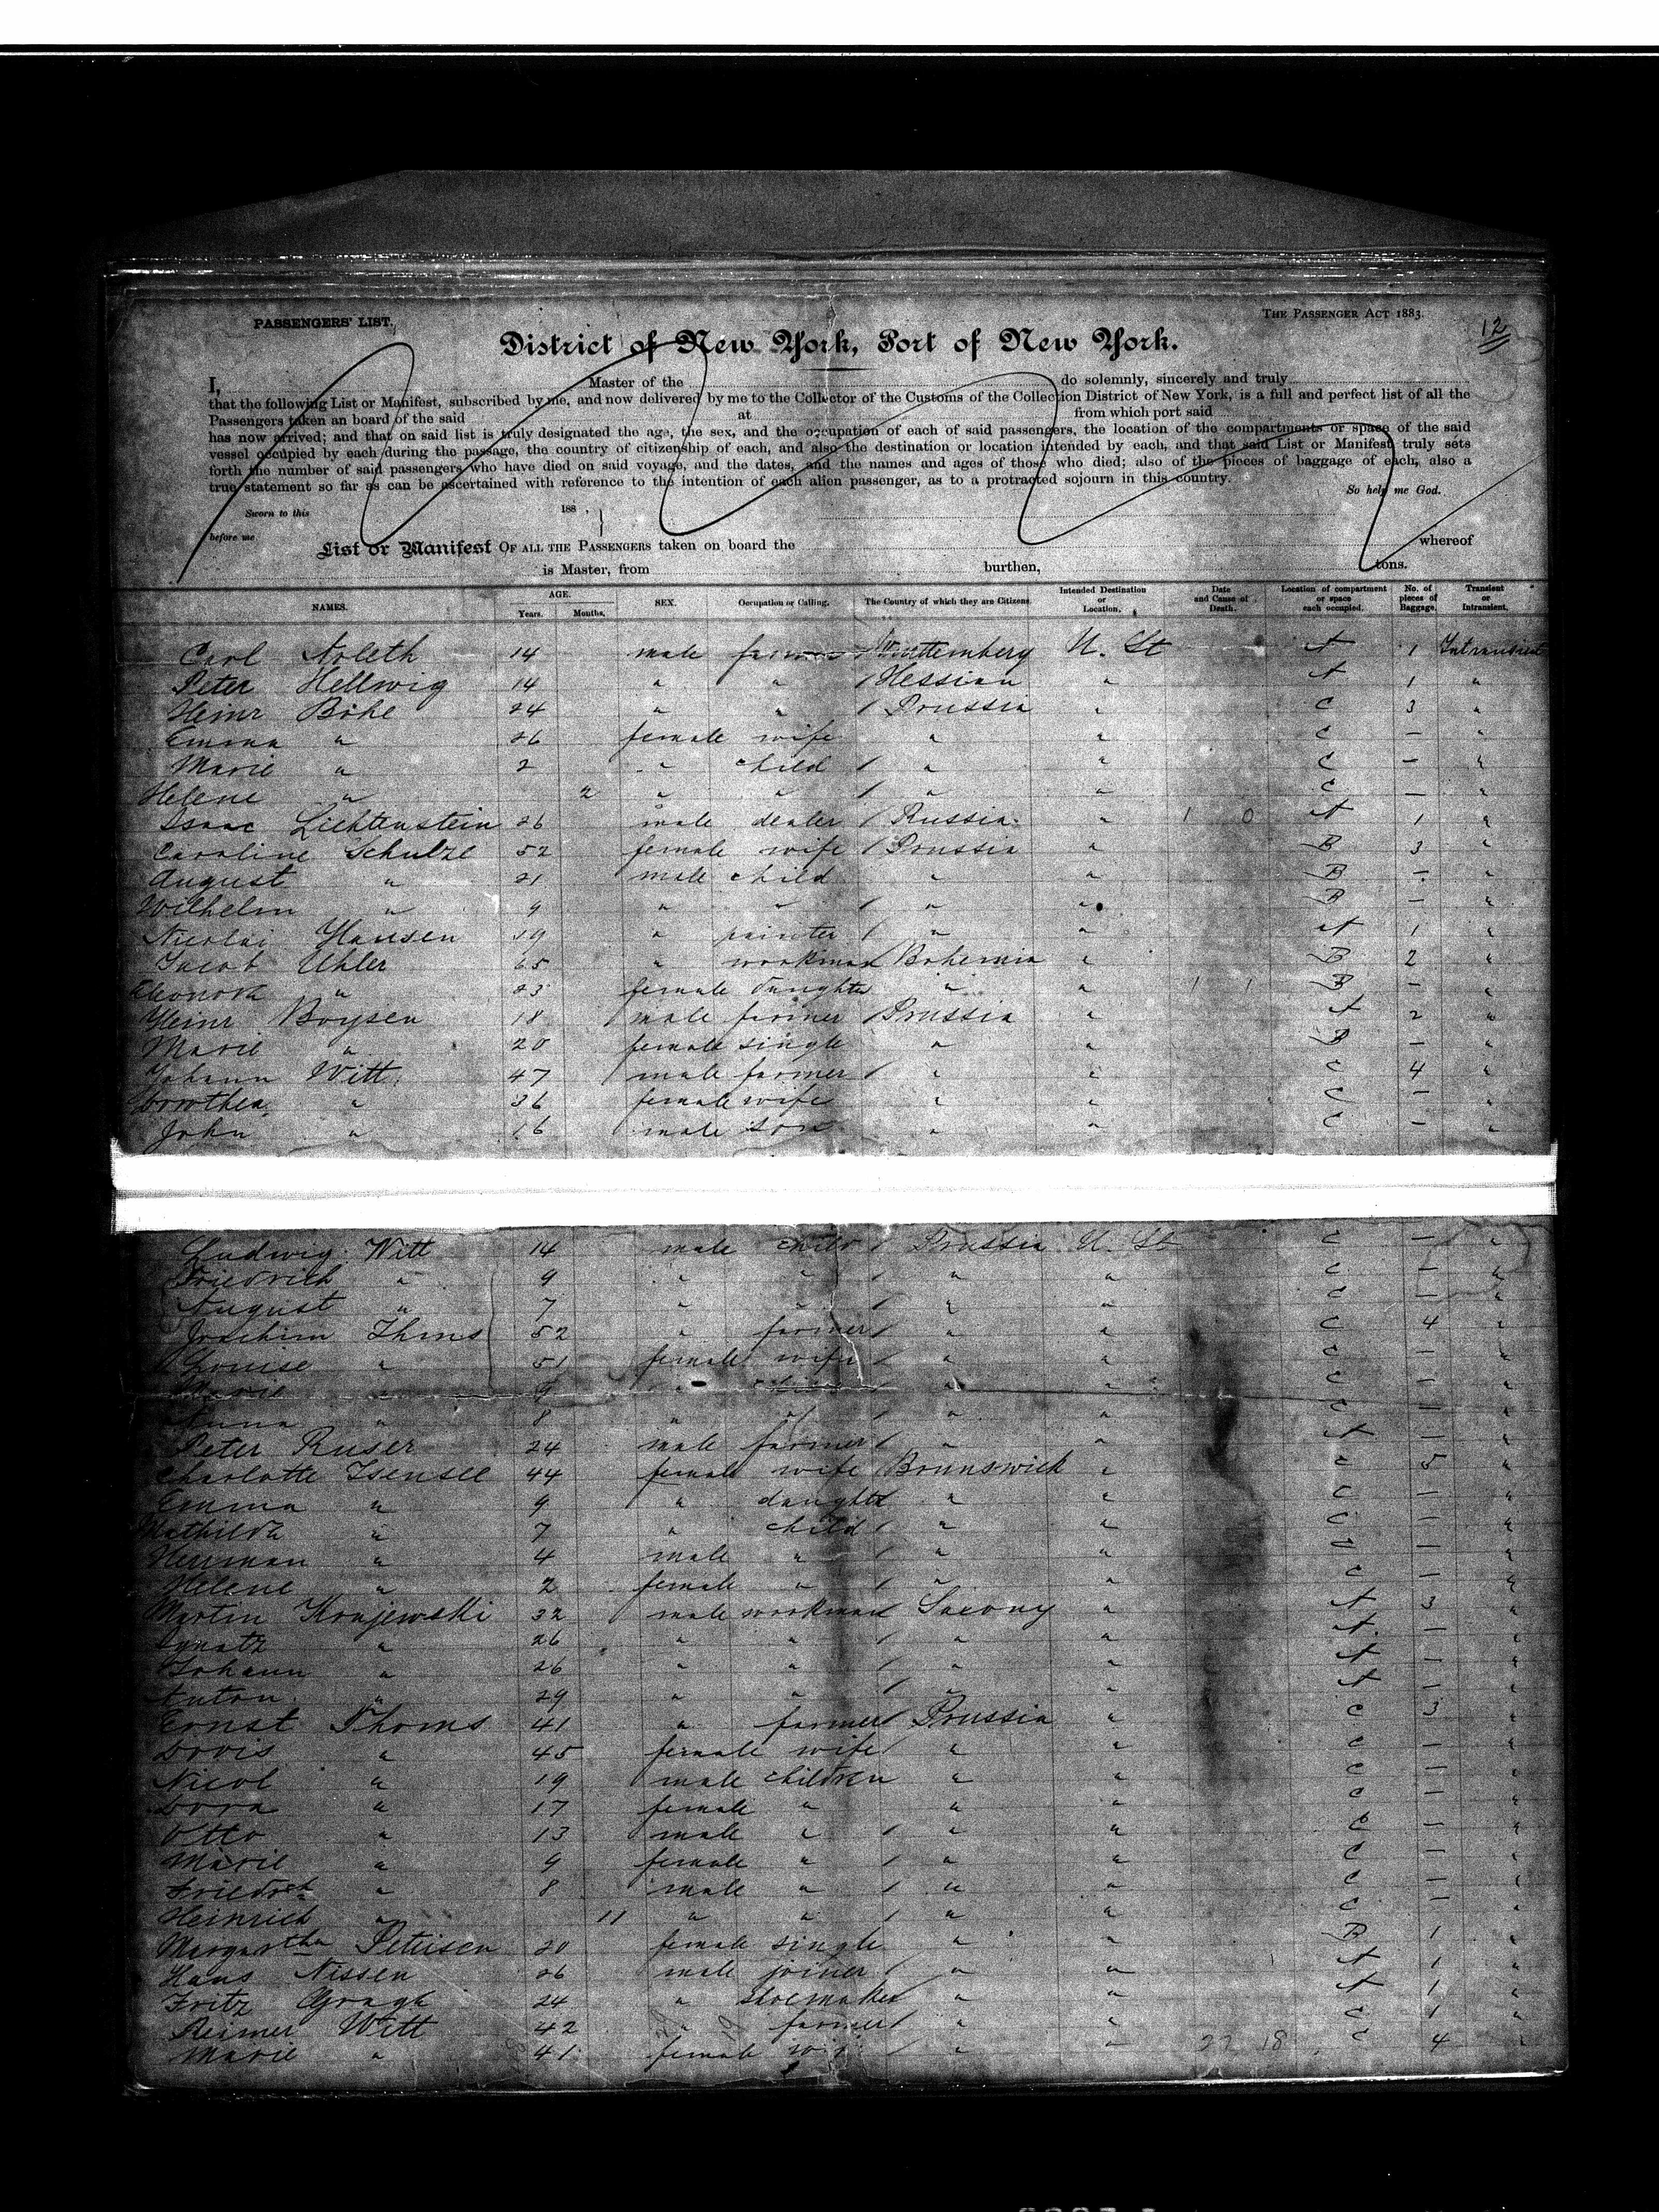 PASSENGERS' LIST.
THE PASSENGER ACT 1883.
12
District of New York, Port of New York.
I, Master of the do solemnly, sincerely and truly
that the following List or Manifest, subscribed by me, and now delivered by me to the Collector of the Customs of the Collection District of New York, is a full and perfect list of all the
Passengers taken an board of the said at from which port said
has now arrived; and that on said list is truly designated the age, the sex, and the occupation of each of said passengers, the location of the compartments or space of the said
vessel occupied by each during the passage, the country of citizenship of each, and also the destination or location intended by each, and that said List or Manifest truly sets
forth the number of said passengers who have died on said voyage, and the dates, and the names and ages of those who died; also of the pieces of baggage of each, also a
true statement so far as can be ascertained with reference to the intention of each alien passenger, as to a protracted sojourn in this country.
So help me God.
Sworn to this 188 ,
before me
List or Manifest OF ALL THE PASSENGERS taken on board the whereof
is Master, from burthen, tons.
NAMES. AGE. Years. Months. SEX. Occupation or Calling. The Country of which they are Citizens. Intended Destination or Location. Date and Cause of Death. Location of compartment or space each occupied. No. of pieces of Baggage. Transient or Intransient.
Carl 14 male farmer Württemberg U. St A 1 Intransient
Peter Hellwig 14 " " Hessian " A 1 "
Heinr Böhe 24 " " Prussia " C 3 "
Emma " 26 female wife " " C — "
Marie " 2 " child " " C — "
Helene " 2 " " " " C — "
Isaac Lichtenstein 26 male dealer Russia " 1 0 A 1 "
Caroline Schulze 52 female wife Prussia " B 3 "
August " 21 male child " " B — "
Wilhelm " 9 " " " " B — "
Nicolai Hansen 19 " painter " " A 1 "
Jacob Uhler 65 " workman Bohemia " B 2 "
Eleonora " 23 female daughter " " 1 1 B — "
Heinr Boysen 18 male farmer Prussia " A 2 "
Marie " 20 female single " " B — "
Johann Witt 47 male farmer " " C 4 "
Dorothea " 36 female wife " " C — "
John " 16 male son " " C — "
Ludwig Witt 14 male child Prussia U. St C — "
Friedrich " 9 " " " " C — "
August " 7 " " " " C — "
Joachim Thms 52 " farmer " " C 4 "
Louise " 51 female wife " " C — "
Marie " 9 " " " C — "
Anna " 8 " " " " C — "
Peter Ruser 24 male farmer " " A — "
Charlotte Isensee 44 female wife Brunswick " C 5 "
Emma " 9 " daughter " " C — "
Mathilda " 7 " child " " C — "
Herrman " 4 male " " " C — "
Helene " 2 female " " " C — "
Martin Krajewski 32 male workman Saxony " A 3 "
Ignatz " 26 " " " " A — "
Johann " 26 " " " " A — "
Anton " 29 " " " " A — "
Ernst Thoms 41 " farmer Prussia " C 3 "
Doris " 45 female wife " " C — "
Nicol " 19 male children " " C — "
Dora " 17 female " " " C — "
Otto " 13 male " " " C — "
Marie " 9 female " " " C — "
Friedrch " 8 male " " " C — "
Heinrich " 11 " " " " C — "
Margaretha Petersen 20 female single " " B 1 "
Hans Nissen 26 male joiner " " A 1 "
Fritz 24 " shoemaker " " A 1 "
Reimer Witt 42 " farmer " " C 1 "
Marie " 41 female " " 22 18 C 4 "